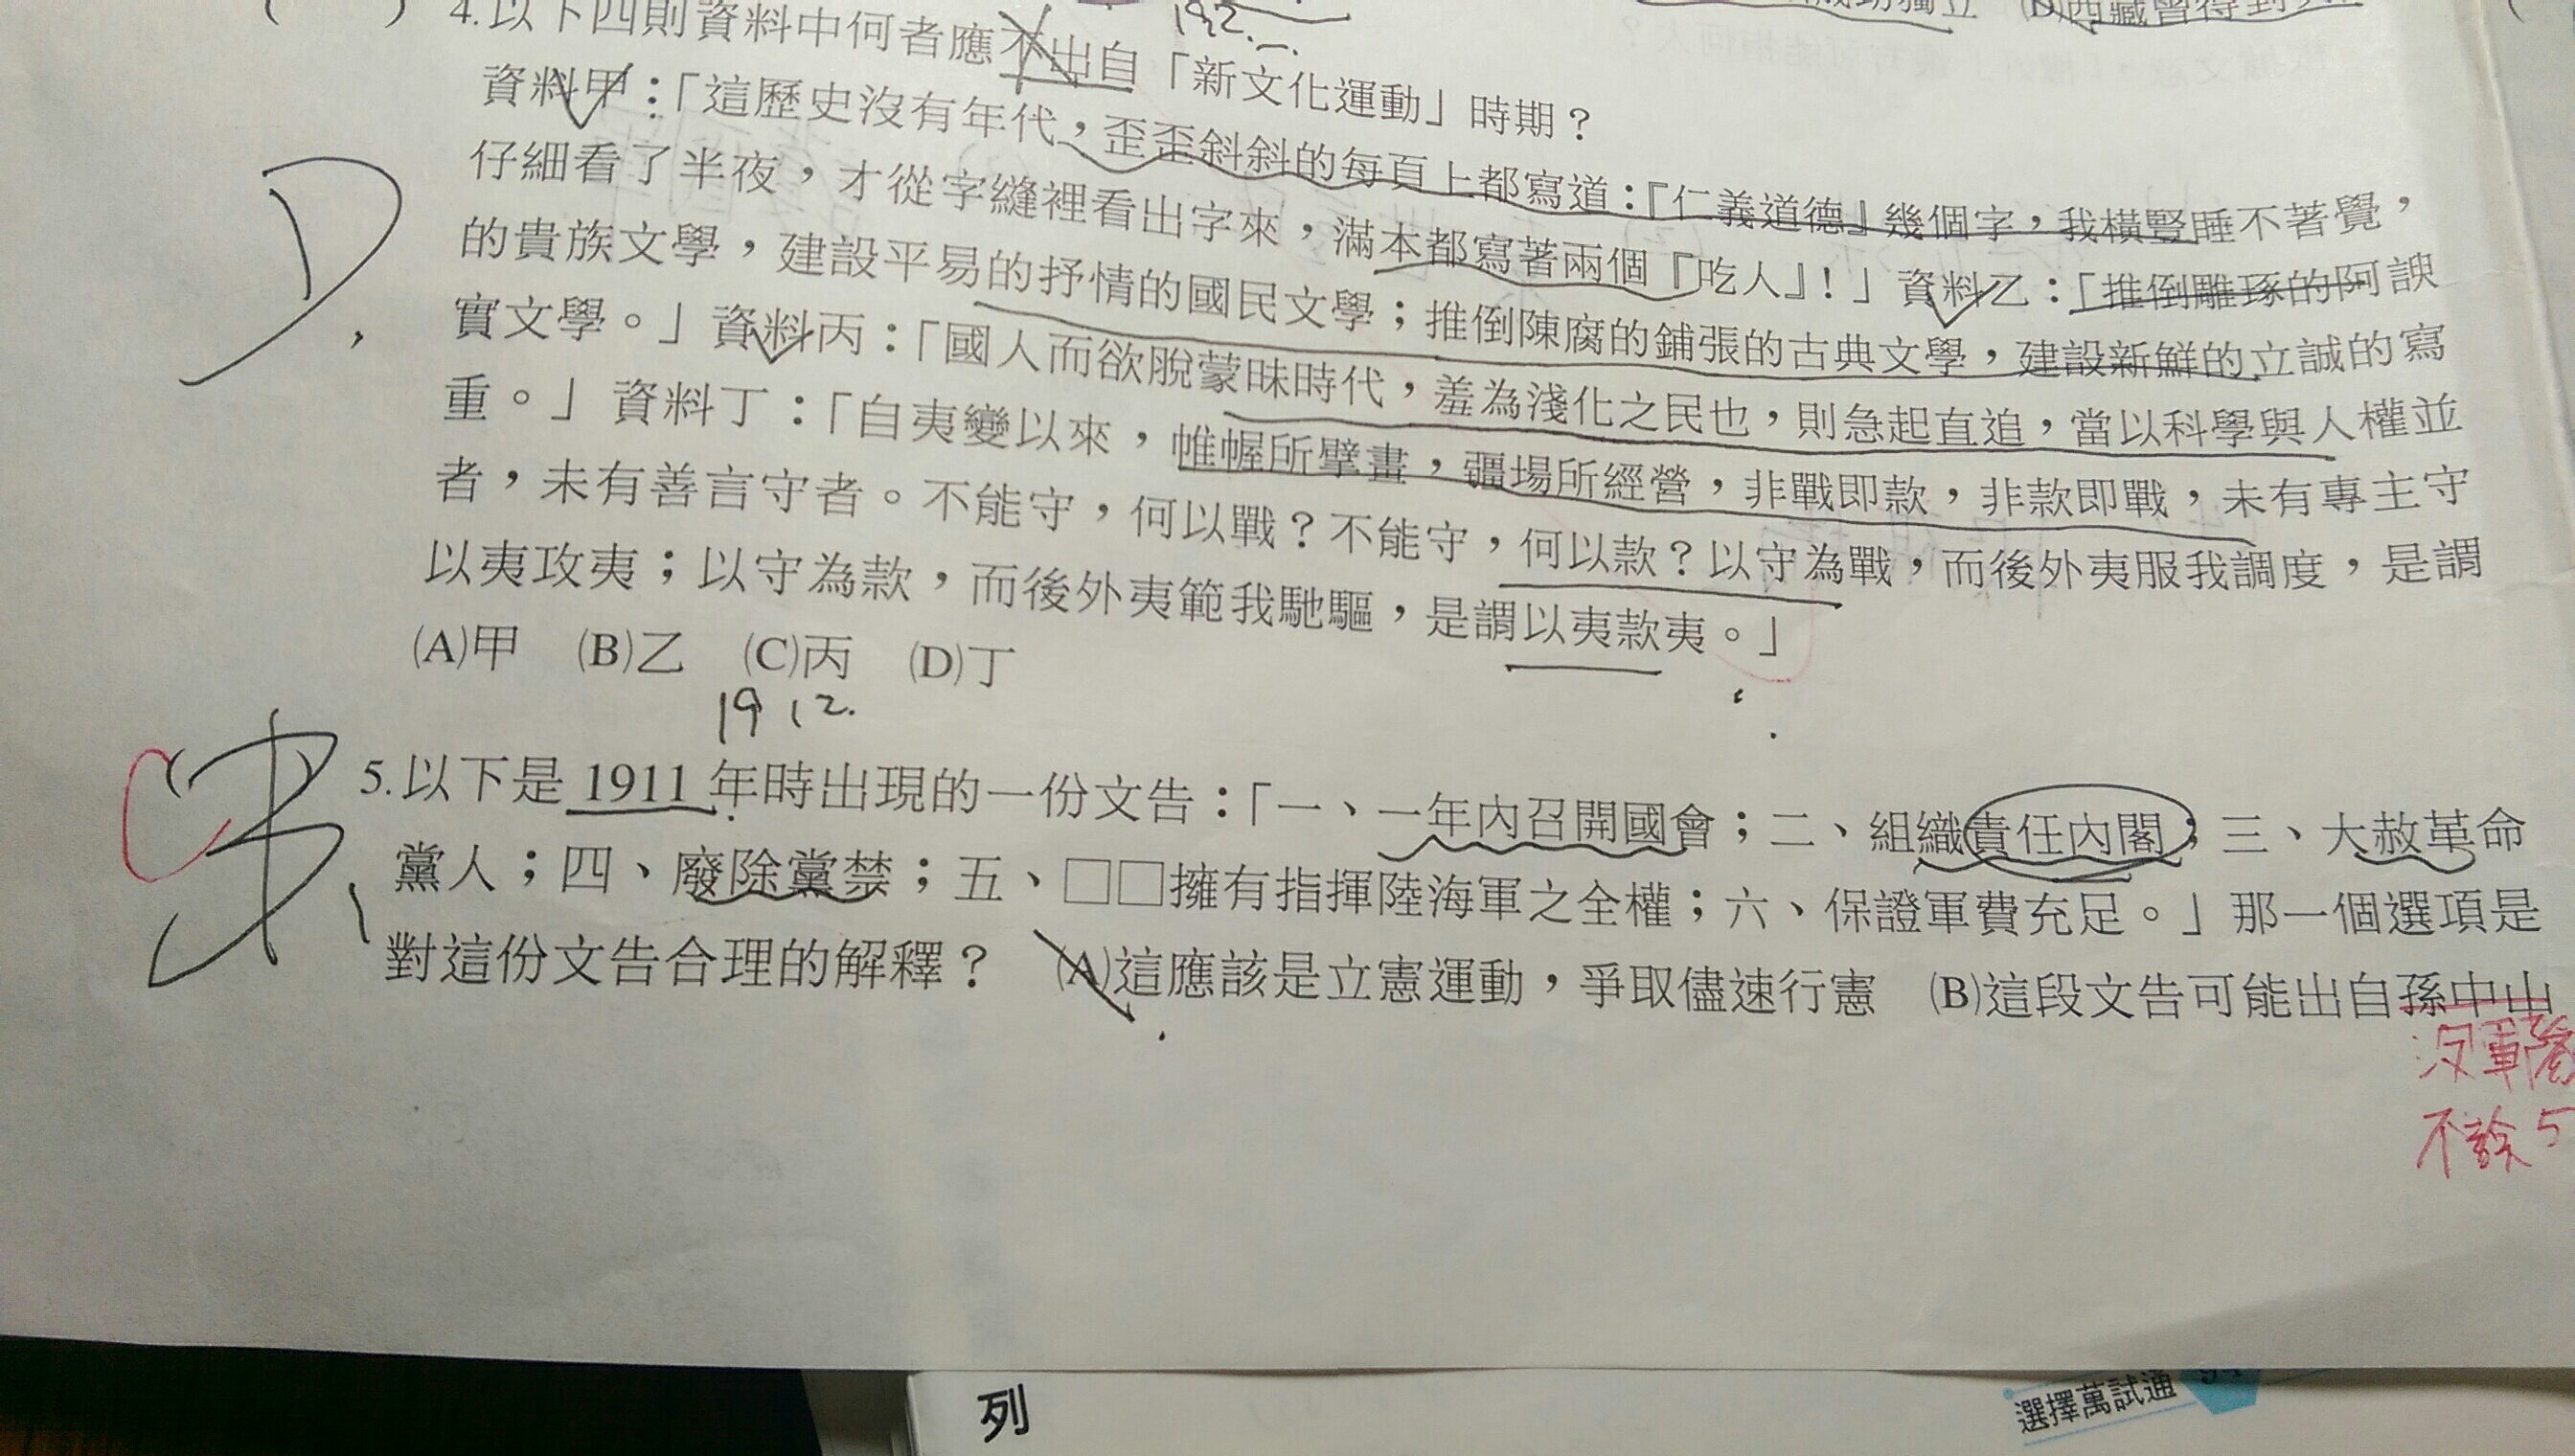 4.以下四則資料中何者應不出自「新文化運動」時期？
192.
成功獨立 (D)西藏曾得到
資料甲：「這歷史沒有年代，歪歪斜斜的每頁上都寫道：『仁義道德』幾個字，我橫豎睡不著覺，
仔細看了半夜，才從字縫裡看出字來，滿本都寫著兩個『吃人』！」資料乙：「推倒雕琢的阿諛
的貴族文學，建設平易的抒情的國民文學；推倒陳腐的鋪張的古典文學，建設新鮮的立誠的寫
實文學。」資料丙：「國人而欲脫蒙昧時代，羞為淺化之民也，則急起直追，當以科學與人權並
重。」資料丁：「自夷變以來，帷幄所擘畫，疆場所經營，非戰即款，非款即戰，未有專主守
者，未有善言守者。不能守，何以戰？不能守，何以款？以守為戰，而後外夷服我調度，是謂
以夷攻夷；以守為款，而後外夷範我馳驅，是謂以夷款夷。」
(A)甲 (B)乙 (C)丙 (D)丁
D
1912.
5.以下是 1911 年時出現的一份文告：「一、一年內召開國會；二、組織責任內閣；三、大赦革命
黨人；四、廢除黨禁；五、□□擁有指揮陸海軍之全權；六、保證軍費充足。」那一個選項是
對這份文告合理的解釋？ (A)這應該是立憲運動，爭取儘速行憲 (B)這段文告可能出自孫中山
沒軍
不 5
列
選擇萬試通